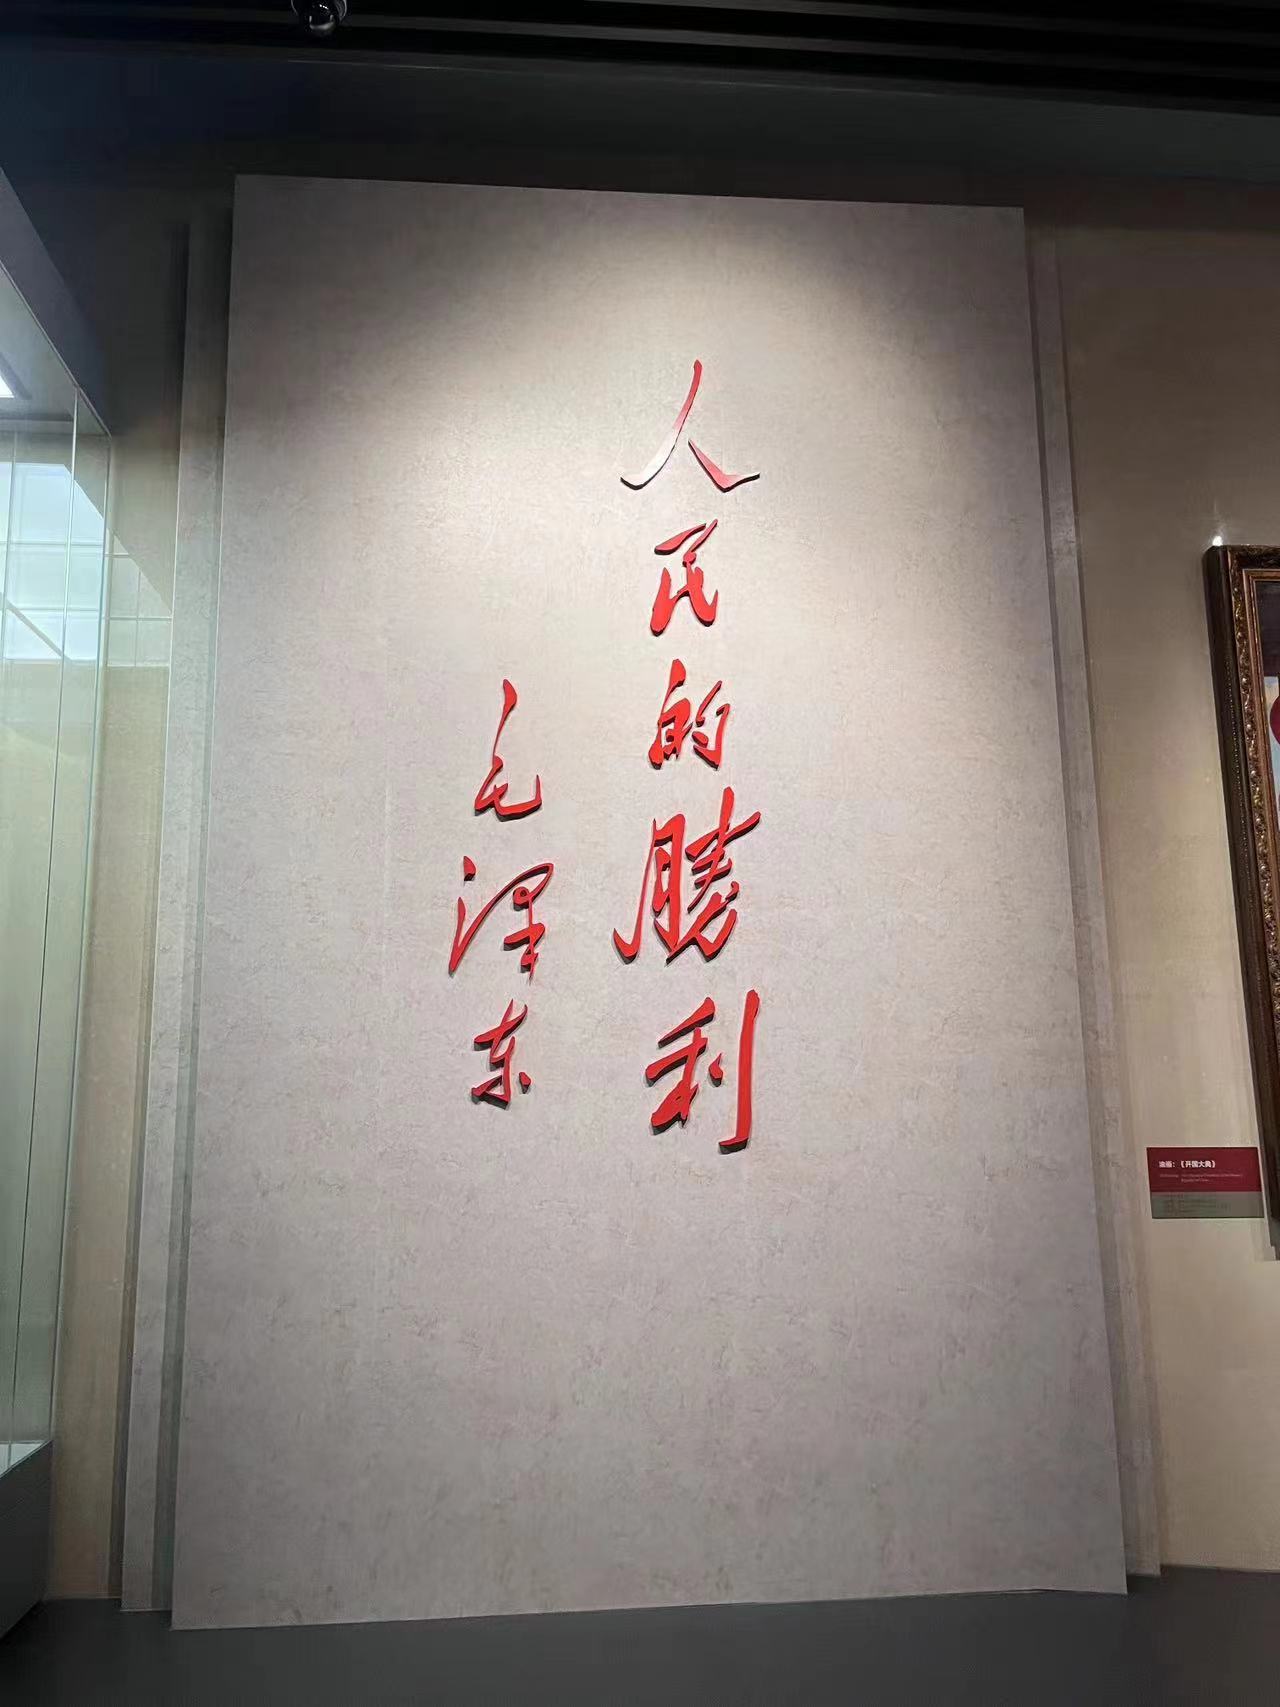 人民的勝利
毛泽东
油画：《开国大典》